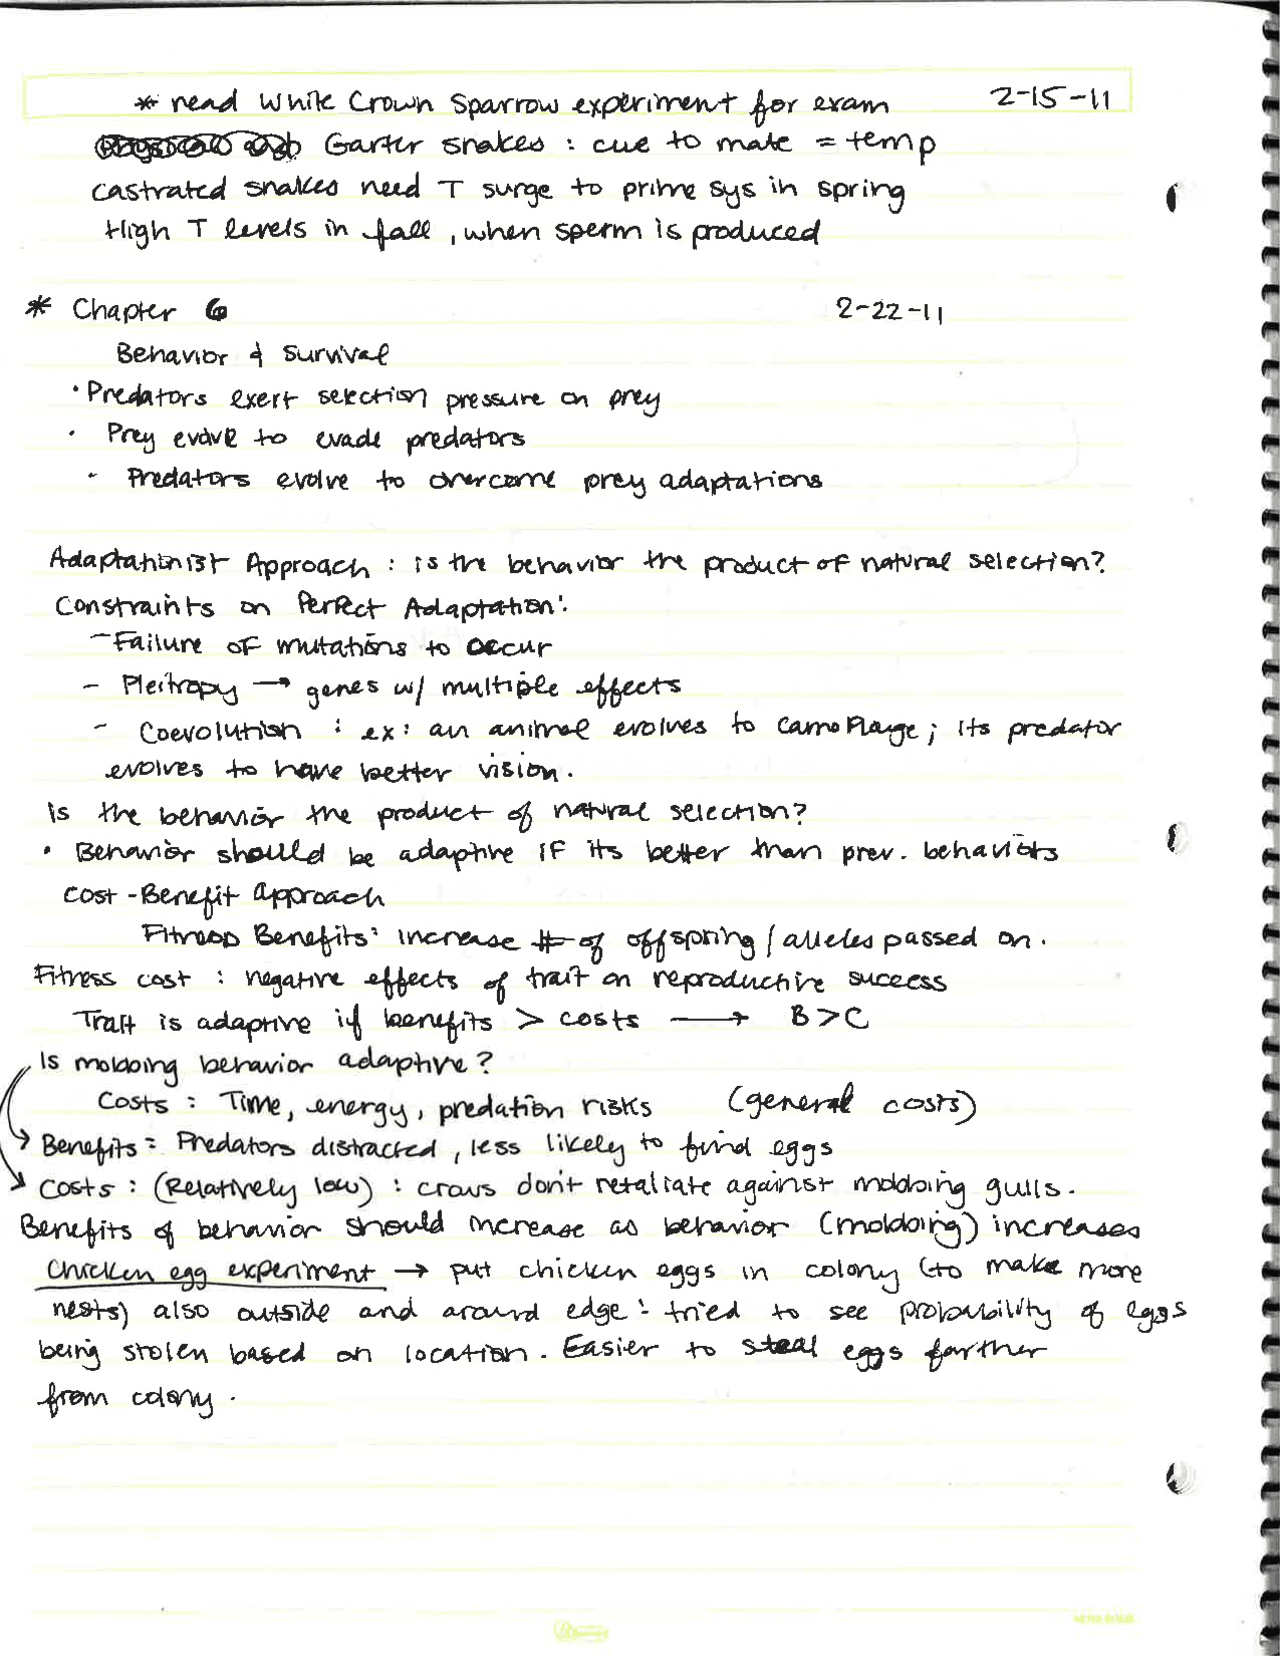 * read White Crown Sparrow experiment for exam 2-15-11
Garter snakes : cue to mate = temp
castrated snakes need T surge to prime sys in spring
High T levels in fall, when sperm is produced
* Chapter 6 2-22-11
Behavior & Survival
· Predators exert selection pressure on prey
· Prey evolve to evade predators
- Predators evolve to overcome prey adaptations
Adaptationist Approach : is the behavior the product of natural selection?
Constraints on Perfect Adaptation:
- Failure of mutations to occur
- Pleitropy → genes w/ multiple effects
- Coevolution : ex: an animal evolves to camoflauge; its predator
evolves to have better vision.
Is the behavior the product of natural selection?
· Behavior should be adaptive IF its better than prev. behaviors
Cost-Benefit Approach
Fitness Benefits: increase # of offspring/alleles passed on.
Fitness cost : negative effects of trait on reproductive success
Trait is adaptive if benefits > costs → B>C
Is mobbing behavior adaptive?
Costs : Time, energy, predation risks (general costs)
Benefits: Predators distracted, less likely to find eggs
Costs : (Relatively low) : crows don't retaliate against mobbing gulls.
Benefits of behavior should increase as behavior (mobbing) increases
Chicken egg experiment → put chicken eggs in colony (to make more
nests) also outside and around edge : tried to see probability of eggs
being stolen based on location. Easier to steal eggs farther
from colony.